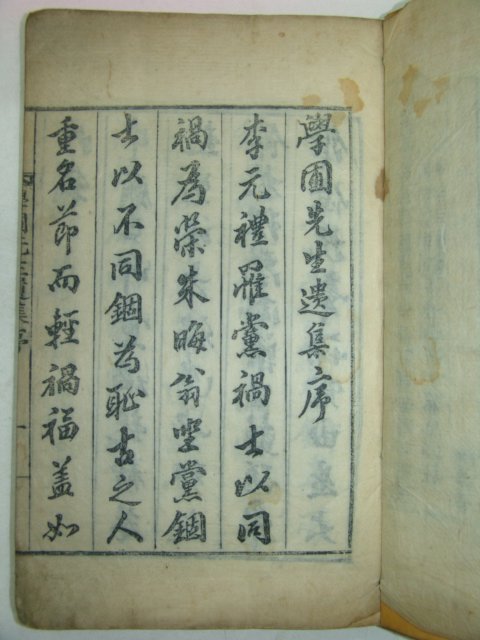 學圃先生遺集序
李元禮罹黨禍士以同
禍爲榮朱晦翁坐黨錮
士以不同錮爲恥古之人
重名節而輕禍福盖如